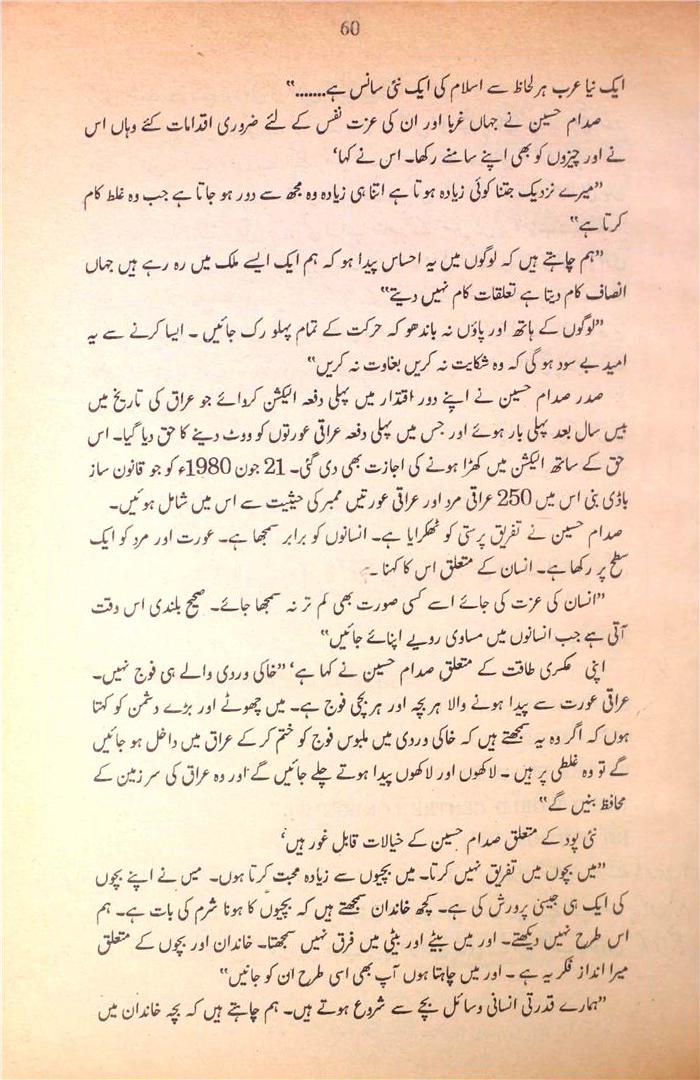 60
ایک نیا عرب ہر لحاظ سے اسلام کی ایک نئی سانس ہے.......“
صدام حسین نے جہاں غربا اور ان کی عزت نفس کے لئے ضروری اقدامات کئے وہاں اس
نے اور چیزوں کو بھی اپنے سامنے رکھا۔ اس نے کہا‘
”میرے نزدیک جتنا کوئی زیادہ ہوتا ہے اتنا ہی زیادہ وہ مجھ سے دور ہو جاتا ہے جب وہ غلط کام
کرتا ہے“
”ہم چاہتے ہیں کہ لوگوں میں یہ احساس پیدا ہو کہ ہم ایک ایسے ملک میں رہ رہے ہیں جہاں
انصاف کام دیتا ہے تعلقات کام نہیں دیتے“
”لوگوں کے ہاتھ اور پاؤں نہ باندھو کہ حرکت کے تمام پہلو رک جائیں ۔ ایسا کرنے سے یہ
امید بے سود ہو گی کہ وہ شکایت نہ کریں بغاوت نہ کریں“
صدر صدام حسین نے اپنے دور اقتدار میں پہلی دفعہ الیکشن کروائے جو عراق کی تاریخ میں
بیس سال بعد پہلی بار ہوئے اور جس میں پہلی دفعہ عراقی عورتوں کو ووٹ دینے کا حق دیا گیا۔ اس
حق کے ساتھ الیکشن میں کھڑا ہونے کی اجازت بھی دی گئی۔ 21 جون 1980ء کو جو قانون ساز
باڈی بنی اس میں 250 عراقی مرد اور عراقی عورتیں ممبر کی حیثیت سے اس میں شامل ہوئیں۔
صدام حسین نے تفریق پرستی کو ٹھکرایا ہے۔ انسانوں کو برابر سمجھا ہے۔ عورت اور مرد کو ایک
سطح پر رکھا ہے۔ انسان کے متعلق اس کا کہنا ہے۔
”انسان کی عزت کی جائے اسے کسی صورت بھی کم تر نہ سمجھا جائے۔ صحیح بلندی اس وقت
آتی ہے جب انسانوں میں مساوی رویے اپنائے جائیں“
اپنی عسکری طاقت کے متعلق صدام حسین نے کہا ہے‘ ”خاکی وردی والے ہی فوج نہیں۔
عراقی عورت سے پیدا ہونے والا ہر بچہ اور ہر بچی فوج ہے۔ میں چھوٹے اور بڑے دشمن کو کہتا
ہوں کہ اگر وہ یہ سمجھتے ہیں کہ خاکی وردی میں ملبوس فوج کو ختم کر کے عراق میں داخل ہو جائیں
گے تو وہ غلطی پر ہیں ۔ لاکھوں اور لاکھوں پیدا ہوتے چلے جائیں گے اور وہ عراق کی سر زمین کے
محافظ بنیں گے“
نئی پود کے متعلق صدام حسین کے خیالات قابل غور ہیں‘
”میں بچوں میں تفریق نہیں کرتا۔ میں بچیوں سے زیادہ محبت کرتا ہوں۔ میں نے اپنے بچوں
کی ایک ہی جیسی پرورش کی ہے۔ کچھ خاندان سمجھتے ہیں کہ بچیوں کا ہونا شرم کی بات ہے۔ ہم
اس طرح نہیں دیکھتے۔ اور میں بیٹے اور بیٹی میں فرق نہیں سمجھتا۔ خاندان اور بچوں کے متعلق
میرا انداز فکر یہ ہے ۔ اور میں چاہتا ہوں آپ بھی اسی طرح ان کو جانیں“
”ہمارے قدرتی انسانی وسائل بچے سے شروع ہوتے ہیں۔ ہم چاہتے ہیں کہ بچہ خاندان میں